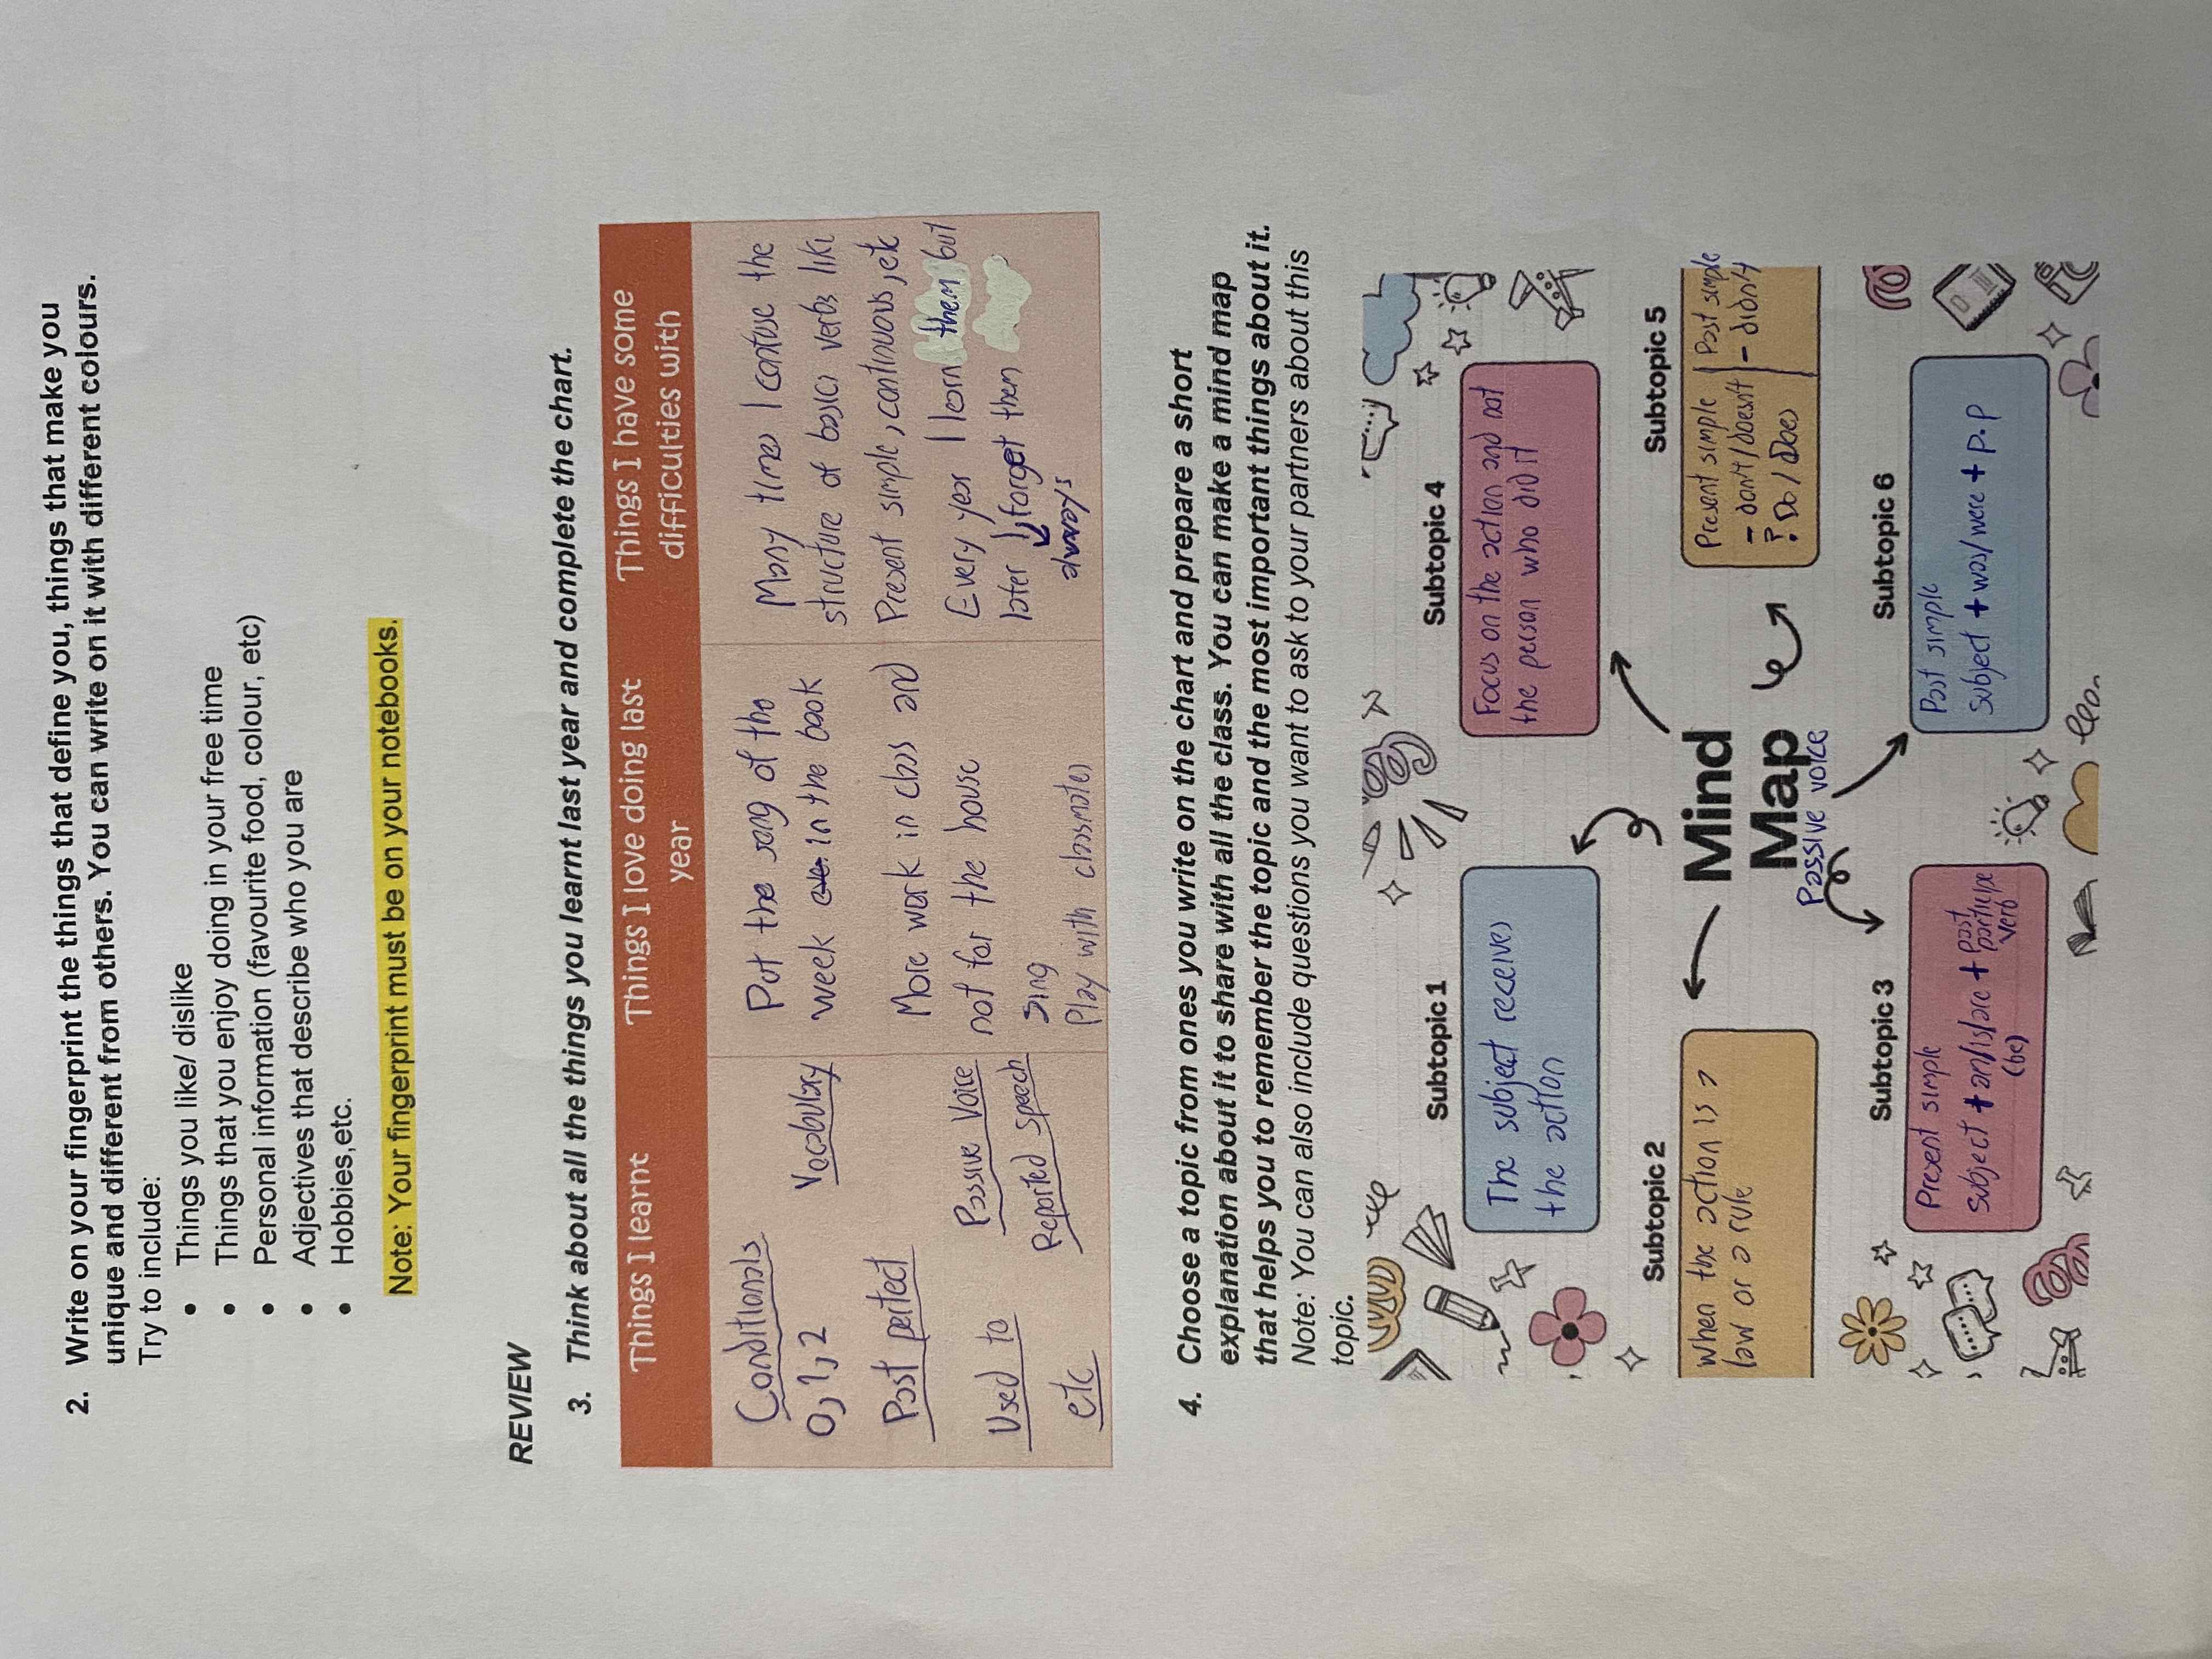 2. Write on your fingerprint the things that define you, things that make you
unique and different from others. You can write on it with different colours.
Try to include:
• Things you like/ dislike
• Things that you enjoy doing in your free time
• Personal information (favourite food, colour, etc)
• Adjectives that describe who you are
• Hobbies,etc.
Note: Your fingerprint must be on your notebooks.
REVIEW
3. Think about all the things you learnt last year and complete the chart.
Things I learnt
Conditionals
0, 1, 2
Vocabulary
Past perfect
Passive Voice
Used to
Reported speach
etc
Things I love doing last
year
Put the song of the
week in the book
More work in class and
not for the house
sing
Play with classmates
Things I have some
difficulties with
Many times I confuse the
structure of basics verbs like
Present simple, continuous, etc
Every year I learn them but
later I forget them
always
4. Choose a topic from ones you write on the chart and prepare a short
explanation about it to share with all the class. You can make a mind map
that helps you to remember the topic and the most important things about it.
Note: You can also include questions you want to ask to your partners about this
topic.
Mind
Map
Passive voice
Subtopic 1
The subject receives
the action
Subtopic 4
Focus on the action and not
the person who did it
Subtopic 2
When the action is a
law or a rule
Subtopic 5
Present simple | Past simple
- don't/doesn't | - didn't
? Do / Does
Subtopic 3
Present simple
Subject + am/is/are + past
participe
(be) verb
Subtopic 6
Past simple
Subject + was/were + p.p